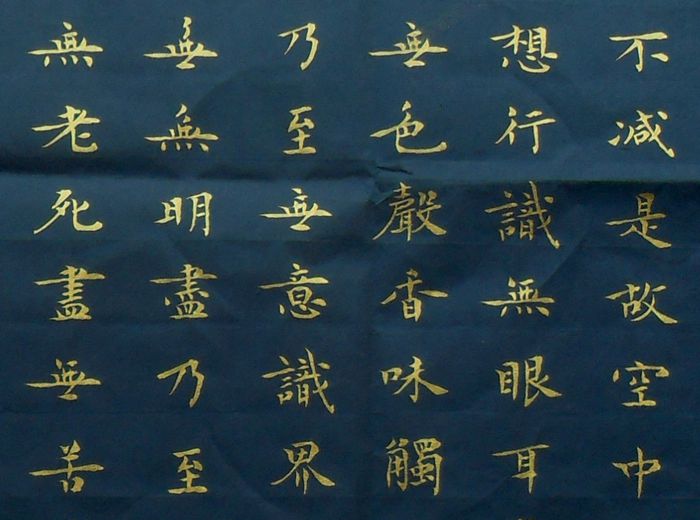 不減是故空中
想行識無眼耳
無色聲香味觸
乃至無意識界
無無明盡乃至
無老死盡無苦